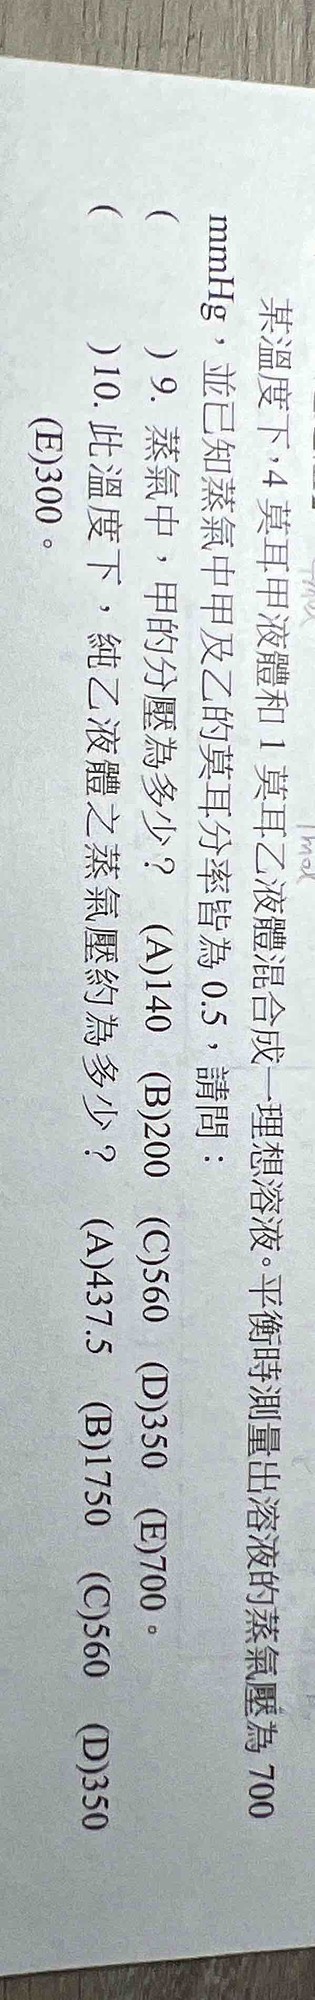 某溫度下，4 莫耳甲液體和 1 莫耳乙液體混合成一理想溶液。平衡時測量出溶液的蒸氣壓為 700
mmHg，並已知蒸氣中甲及乙的莫耳分率皆為 0.5，請問：
(　　) 9. 蒸氣中，甲的分壓為多少？ (A)140 (B)200 (C)560 (D)350 (E)700。
(　　)10. 此溫度下，純乙液體之蒸氣壓約為多少？ (A)437.5 (B)1750 (C)560 (D)350
(E)300。
1mol